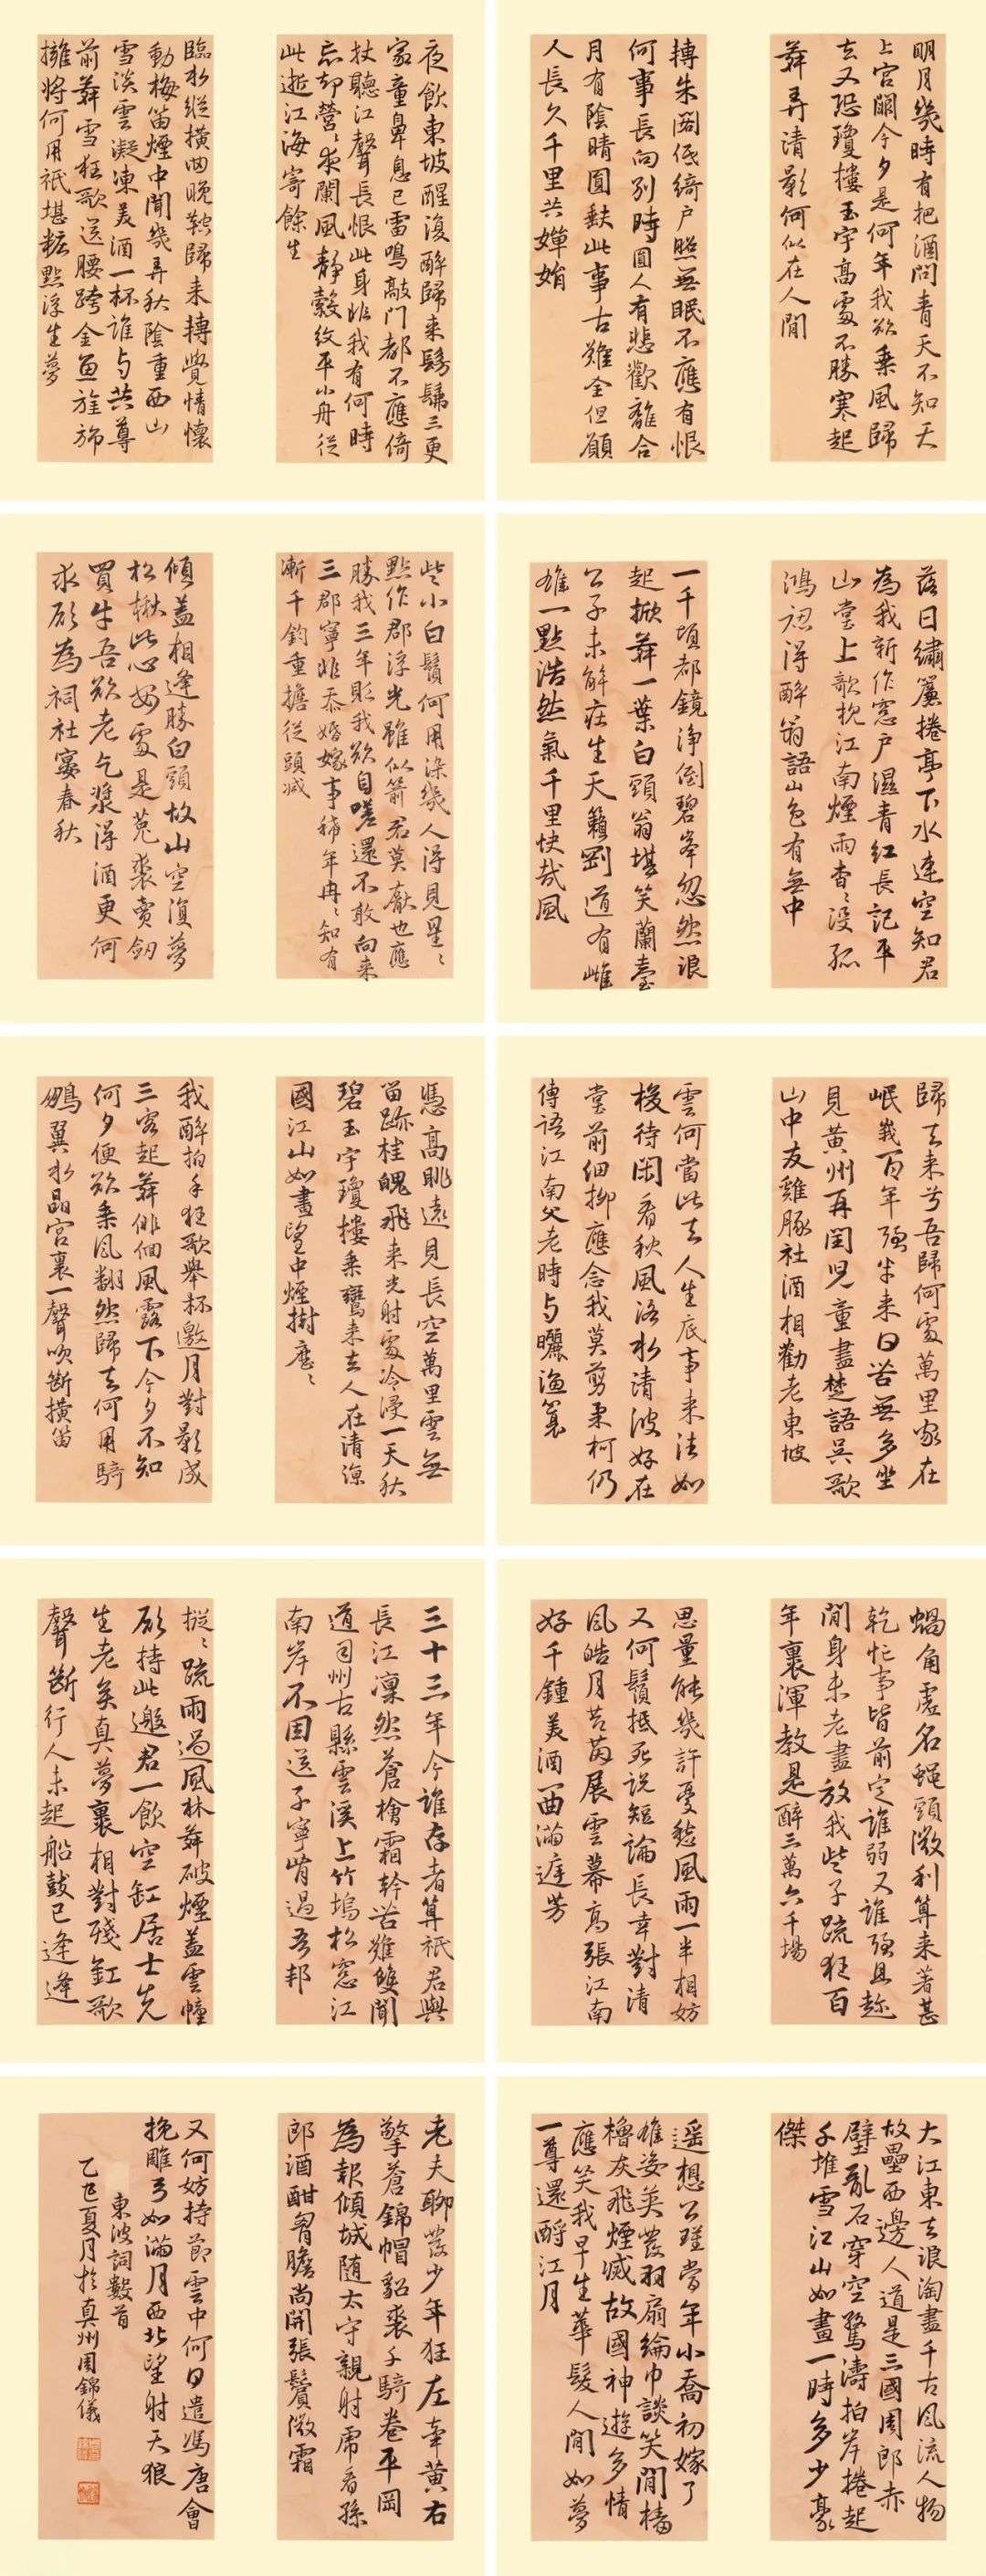 明月幾時有把酒問青天不知天
上宮闕今夕是何年我欲乘風歸
去又恐瓊樓玉宇高處不勝寒起
舞弄清影何似在人間
轉朱閣低綺戶照無眠不應有恨
何事長向別時圓人有悲歡離合
月有陰晴圓缺此事古難全但願
人長久千里共嬋娟
夜飲東坡醒復醉歸來髣髴三更
家童鼻息已雷鳴敲門都不應倚
杖聽江聲長恨此身非我有何時
忘却營々夜闌風靜縠紋平小舟從
此逝江海寄餘生
臨水縱橫回晚鞚歸來轉覺情懷
動梅笛煙中聞幾弄秋陰重西山
雪淡雲凝凍美酒一杯誰与共尊
前舞雪狂歌送腰跨金魚旌旆
擁將何用祇堪粧點浮生夢
落日繡簾捲亭下水連空知君
為我新作窓戶濕青紅長記平
山堂上欹枕江南煙雨杳々沒孤
鴻認得醉翁語山色有無中
一千頃都鏡淨倒碧峯忽然浪
起掀舞一葉白頭翁堪笑蘭臺
公子未解莊生天籟剛道有雌
雄一點浩然氣千里快哉風
些小白鬚何用染幾人得見星々
點作郡浮光雖似箭君莫厭也應
勝我三年貶我欲自嗟還不敢向來
三郡寧非忝婚嫁事稀年冉々知有
漸千鈞重擔從頭減
傾蓋相逢勝白頭故山空復夢
松楸此心安處是菟裘賣劍
買牛吾欲老乞漿得酒更何
求願為祠社宴春秋
歸去來兮吾歸何處萬里家在
岷峨百年強半來日苦無多坐
見黃州再閏兒童盡楚語吳歌
山中友雞豚社酒相勸老東坡
雲何當此去人生底事來往如
梭待閑看秋風洛水清波好在
堂前細柳應念我莫剪柔柯仍
傳語江南父老時与曬漁蓑
憑高眺遠見長空萬里雲無
留跡桂魄飛來光射處冷浸一天秋
碧玉宇瓊樓乘鸞來去人在清涼
國江山如畫望中煙樹歷々
我醉拍手狂歌舉杯邀月對影成
三客起舞徘徊風露下今夕不知
何夕便欲乘風翻然歸去何用騎
鵬翼水晶宮裏一聲吹斷橫笛
蝸角虛名蠅頭微利算來著甚
乾忙事皆前定誰弱又誰強且趁
閒身未老盡放我些子疏狂百
年裏渾教是醉三萬六千場
思量能幾許憂愁風雨一半相妨
又何須抵死說短論長幸對清
風皓月苔茵展雲幕高張江南
好千鍾美酒一曲滿庭芳
三十三年今誰存者算祇君與
長江凜然蒼檜霜幹苦難雙聞
道司州古縣雲溪上竹塢松窓江
南岸不因送子寧肯過吾邦
摐々疏雨過風林舞破煙蓋雲幢
願持此邀君一飲空缸居士先
生老矣真夢裏相對殘釭歌
聲斷行人未起船鼓已逢逢
大江東去浪淘盡千古風流人物
故壘西邊人道是三國周郎赤
壁亂石穿空驚濤拍岸捲起
千堆雪江山如畫一時多少豪
傑
遥想公瑾當年小喬初嫁了
雄姿英發羽扇綸巾談笑間檣
櫓灰飛煙滅故國神遊多情
應笑我早生華髮人間如夢
一尊還酹江月
老夫聊發少年狂左牽黃右
擎蒼錦帽貂裘千騎卷平岡
為報傾城隨太守親射虎看孫
郎酒酣胷膽尚開張鬢微霜
又何妨持節雲中何日遣馮唐會
挽雕弓如滿月西北望射天狼
東波詞數首
乙巳夏月於真州周錦儀